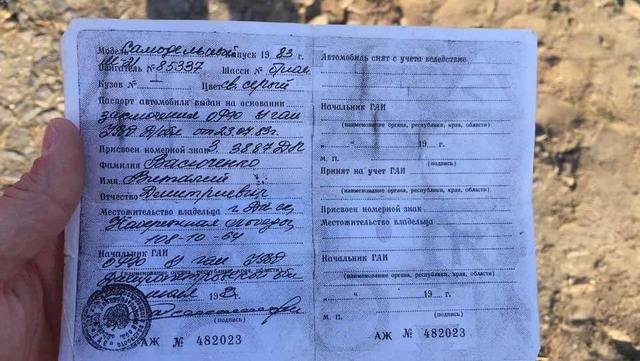 Модель Самодельный выпуск 1983 г.
Двигатель № 85337 Шасси №
Кузов № — Цвет св. серый
Паспорт автомобиля выдан на основании
заключения ОРЭО УГАИ
УВД от 23.07.83г.
Присвоен номерной знак З 3887 ДП
Фамилия Василенко
Имя Виталий
Отчество Дмитриевич
Местожительство владельца г.
Набережная Победы
108-10-64
Начальник ГАИ
УГАИ УВД
Днепропетровской обл
(наименование органа, республики, края, области)
198 г.
(подпись)
АЖ № 482023
Автомобиль снят с учета вследствие
Начальник ГАИ
(наименование органа, республики, края, области)
„ “ 19 г.
М. П. (подпись)
Принят на учет ГАИ
(наименование органа, республики, края, области)
Присвоен номерной знак
Местожительство владельца
Начальник ГАИ
(наименование органа, республики, края, области)
„ “ 19 г.
М. П. (подпись)
АЖ № 482023